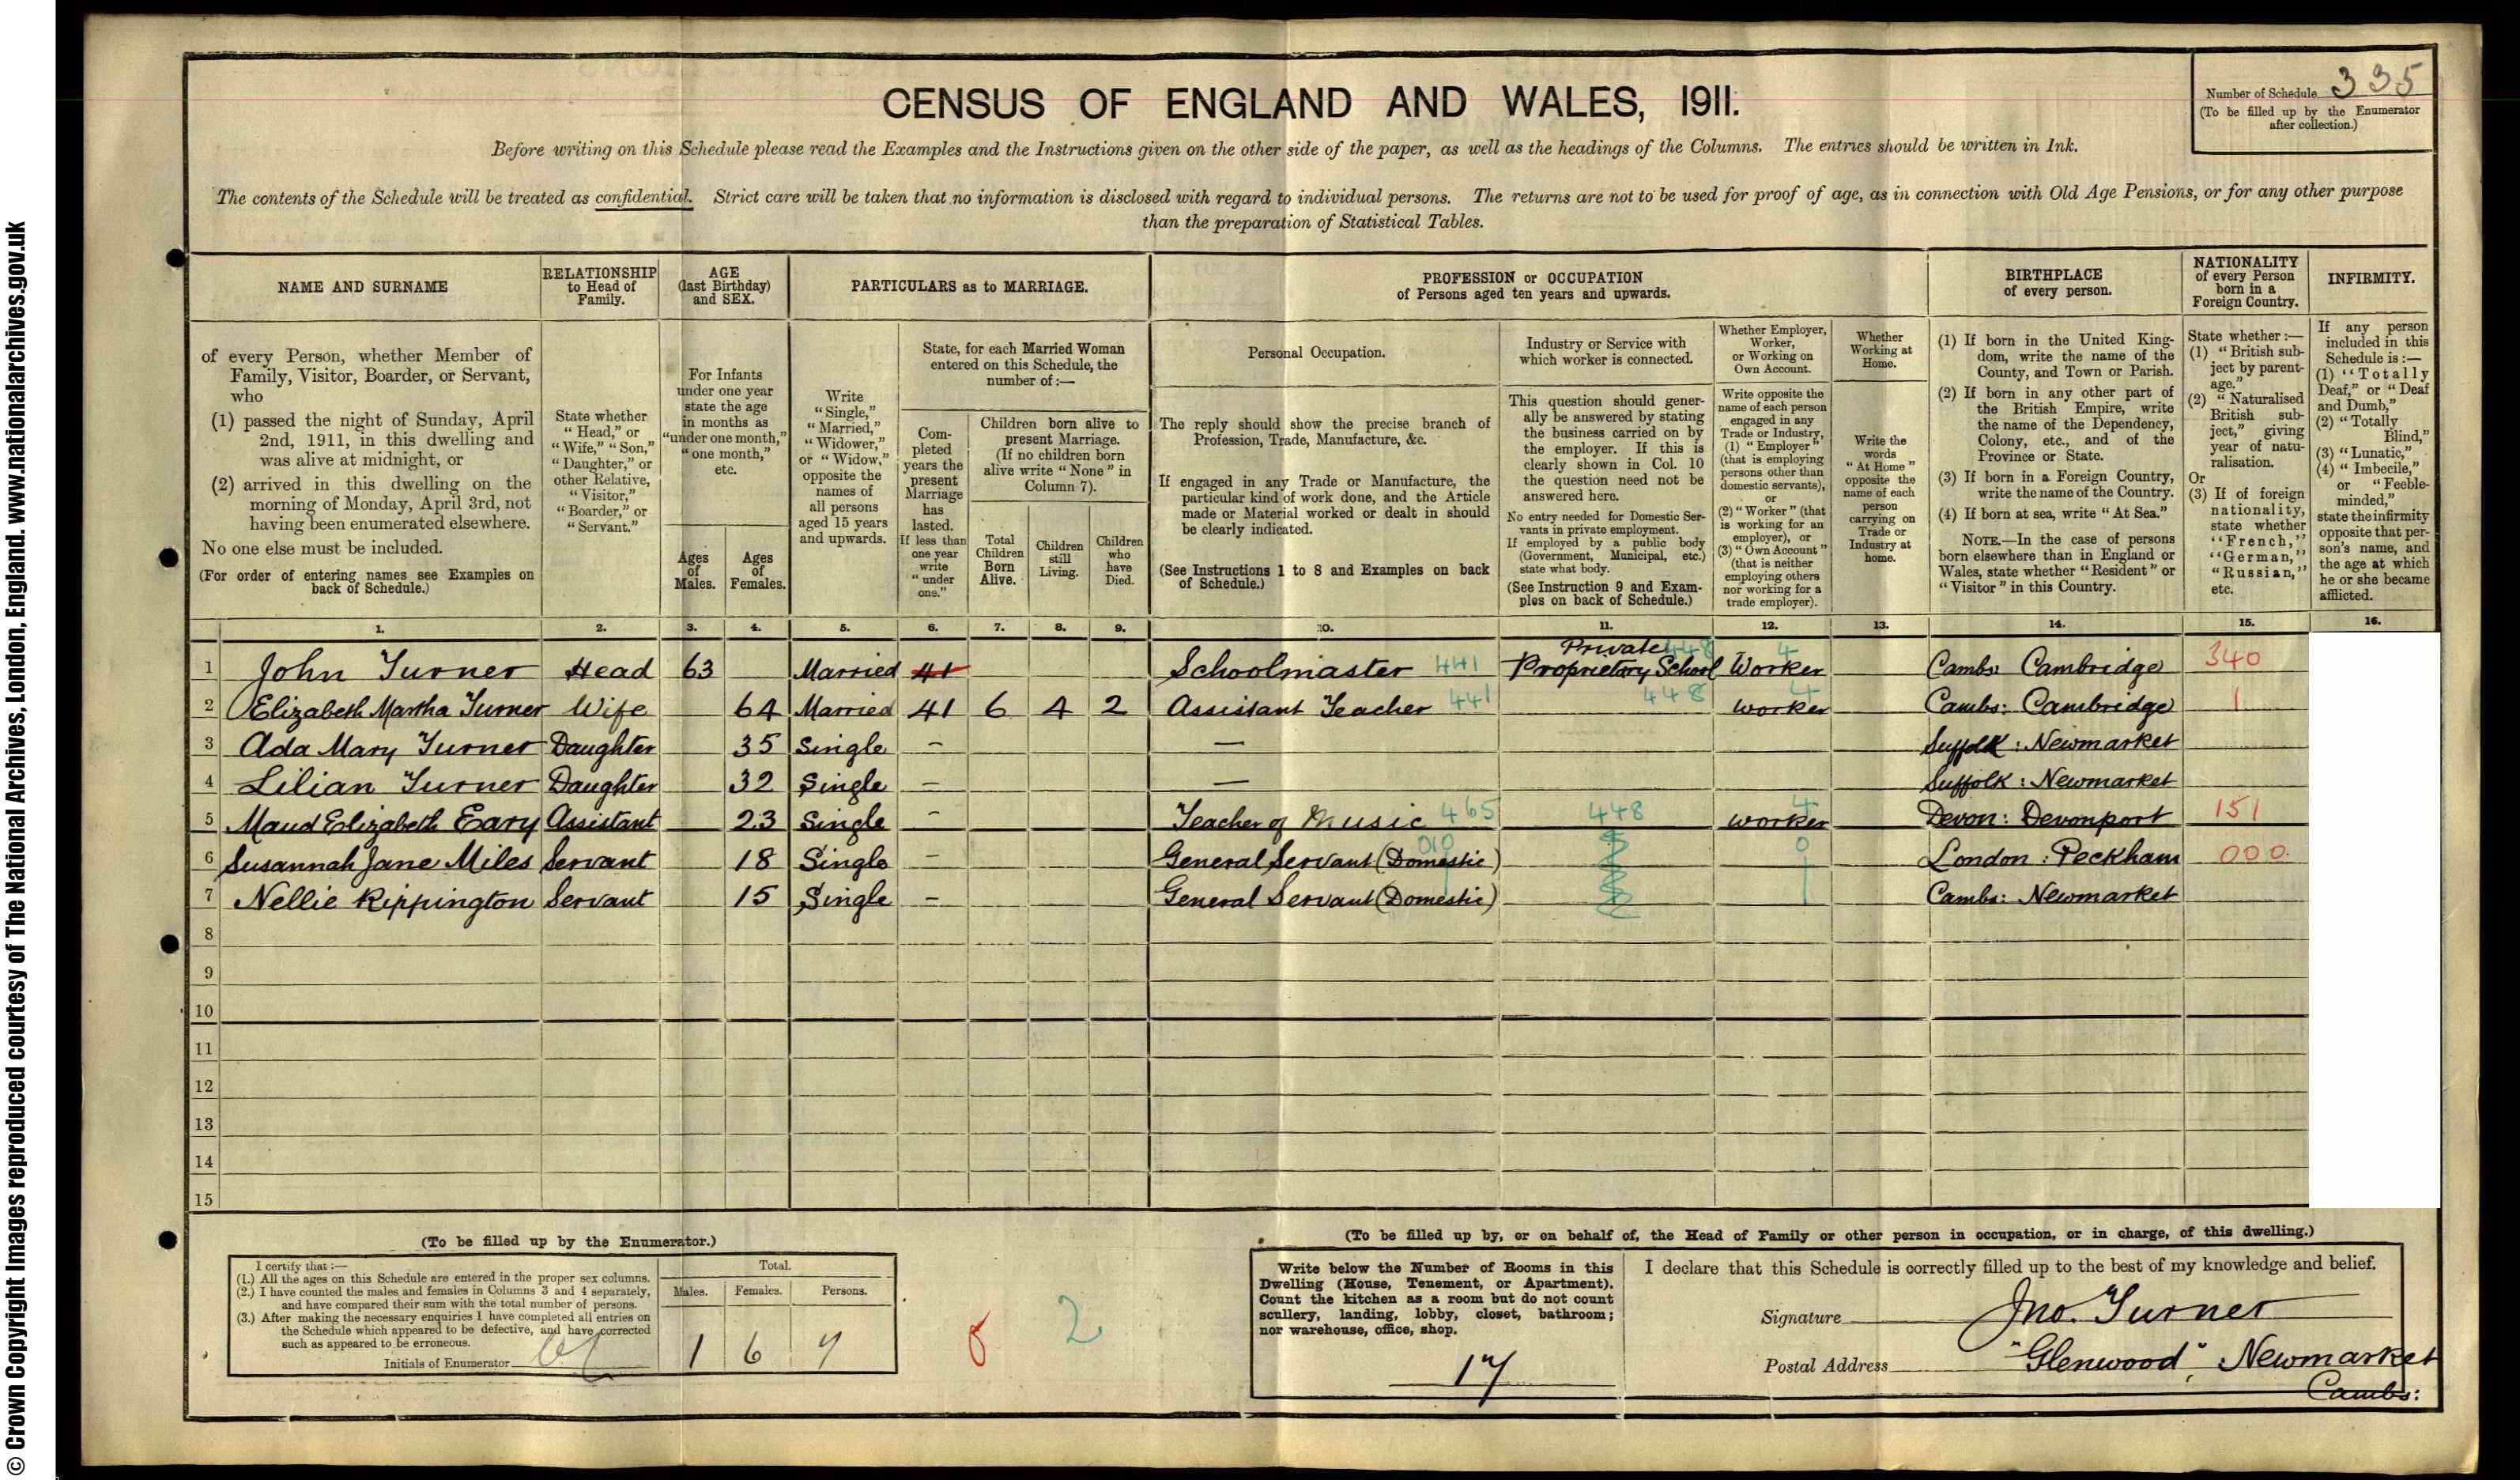 © Crown Copyright Images reproduced courtesy of The National Archives, London, England. www.nationalarchives.gov.uk
CENSUS OF ENGLAND AND WALES, 1911.
Number of Schedule 335
(To be filled up by the Enumerator
after collection.)
Before writing on this Schedule please read the Examples and the Instructions given on the other side of the paper, as well as the headings of the Columns. The entries should be written in Ink.
The contents of the Schedule will be treated as confidential. Strict care will be taken that no information is disclosed with regard to individual persons. The returns are not to be used for proof of age, as in connection with Old Age Pensions, or for any other purpose
than the preparation of Statistical Tables.
NAME AND SURNAME
of every Person, whether Member of
Family, Visitor, Boarder, or Servant,
who
(1) passed the night of Sunday, April
2nd, 1911, in this dwelling and
was alive at midnight, or
(2) arrived in this dwelling on the
morning of Monday, April 3rd, not
having been enumerated elsewhere.
No one else must be included.
(For order of entering names see Examples on
back of Schedule.)
RELATIONSHIP
to Head of
Family.
State whether
"Head," or
"Wife," "Son,"
"Daughter," or
other Relative,
"Visitor,"
"Boarder," or
"Servant."
AGE
(last Birthday)
and SEX.
For Infants
under one year
state the age
in months as
"under one month,"
"one month,"
etc.
Ages
of
Males.
Ages
of
Females.
PARTICULARS as to MARRIAGE.
Write
"Single,"
"Married,"
"Widower,"
or "Widow,"
opposite the
names of
all persons
aged 15 years
and upwards.
State, for each Married Woman
entered on this Schedule, the
number of:—
Com-
pleted
years the
present
Marriage
has
lasted.
If less than
one year
write
"under
one."
Children born alive to
present Marriage.
(If no children born
alive write "None" in
Column 7).
Total
Children
Born
Alive.
Children
still
Living.
Children
who
have
Died.
PROFESSION or OCCUPATION
of Persons aged ten years and upwards.
Personal Occupation.
The reply should show the precise branch of
Profession, Trade, Manufacture, &c.
If engaged in any Trade or Manufacture, the
particular kind of work done, and the Article
made or Material worked or dealt in should
be clearly indicated.
(See Instructions 1 to 8 and Examples on back
of Schedule.)
Industry or Service with
which worker is connected.
This question should gener-
ally be answered by stating
the business carried on by
the employer. If this is
clearly shown in Col. 10
the question need not be
answered here.
No entry needed for Domestic Ser-
vants in private employment.
If employed by a public body
(Government, Municipal, etc.)
state what body.
(See Instruction 9 and Exam-
ples on back of Schedule.)
Whether Employer,
Worker,
or Working on
Own Account.
Write opposite the
name of each person
engaged in any
Trade or Industry,
(1) "Employer"
(that is employing
persons other than
domestic servants),
or
(2) "Worker" (that
is working for an
employer), or
(3) "Own Account"
(that is neither
employing others
nor working for a
trade employer).
Whether
Working at
Home.
Write the
words
"At Home"
opposite the
name of each
person
carrying on
Trade or
Industry at
home.
BIRTHPLACE
of every person.
(1) If born in the United King-
dom, write the name of the
County, and Town or Parish.
(2) If born in any other part of
the British Empire, write
the name of the Dependency,
Colony, etc., and of the
Province or State.
(3) If born in a Foreign Country,
write the name of the Country.
(4) If born at sea, write "At Sea."
NOTE.—In the case of persons
born elsewhere than in England or
Wales, state whether "Resident" or
"Visitor" in this Country.
NATIONALITY
of every Person
born in a
Foreign Country.
State whether:—
(1) "British sub-
ject by parent-
age."
(2) "Naturalised
British sub-
ject," giving
year of natu-
ralisation.
Or
(3) If of foreign
nationality,
state whether
"French,"
"German,"
"Russian,"
etc.
INFIRMITY.
If any person
included in this
Schedule is:—
(1) "Totally
Deaf," or "Deaf
and Dumb,"
(2) "Totally
Blind,"
(3) "Lunatic,"
(4) "Imbecile,"
or "Feeble-
minded,"
state the infirmity
opposite that per-
son's name, and
the age at which
he or she became
afflicted.
1. 2. 3. 4. 5. 6. 7. 8. 9. 10. 11. 12. 13. 14. 15. 16.
Private 448 4
1 John Turner Head 63 Married 41 Schoolmaster 441 Proprietary School Worker Cambs: Cambridge 340
2 Elizabeth Martha Turner Wife 64 Married 41 6 4 2 Assistant Teacher 441 448 4 Worker Cambs: Cambridge 1
3 Ada Mary Turner Daughter 35 Single – — Suffolk: Newmarket
4 Lilian Turner Daughter 32 Single – — Suffolk: Newmarket
5 Maud Elizabeth Eary Assistant 23 Single – Teacher of Music 465 448 4 Worker Devon: Devonport 151
6 Susannah Jane Miles Servant 18 Single – General Servant (Domestic) 010 0 London: Peckham 000
7 Nellie Rippington Servant 15 Single – General Servant (Domestic) Cambs: Newmarket
8
9
10
11
12
13
14
15
(To be filled up by the Enumerator.)
I certify that:—
(1.) All the ages on this Schedule are entered in the proper sex columns.
(2.) I have counted the males and females in Columns 3 and 4 separately,
and have compared their sum with the total number of persons.
(3.) After making the necessary enquiries I have completed all entries on
the Schedule which appeared to be defective, and have corrected
such as appeared to be erroneous.
Initials of Enumerator
Total.
Males. Females. Persons.
1 6 7
2
(To be filled up by, or on behalf of, the Head of Family or other person in occupation, or in charge, of this dwelling.)
Write below the Number of Rooms in this
Dwelling (House, Tenement, or Apartment).
Count the kitchen as a room but do not count
scullery, landing, lobby, closet, bathroom;
nor warehouse, office, shop.
17
I declare that this Schedule is correctly filled up to the best of my knowledge and belief.
Signature Jno. Turner
Postal Address "Glenwood", Newmarket
Cambs: